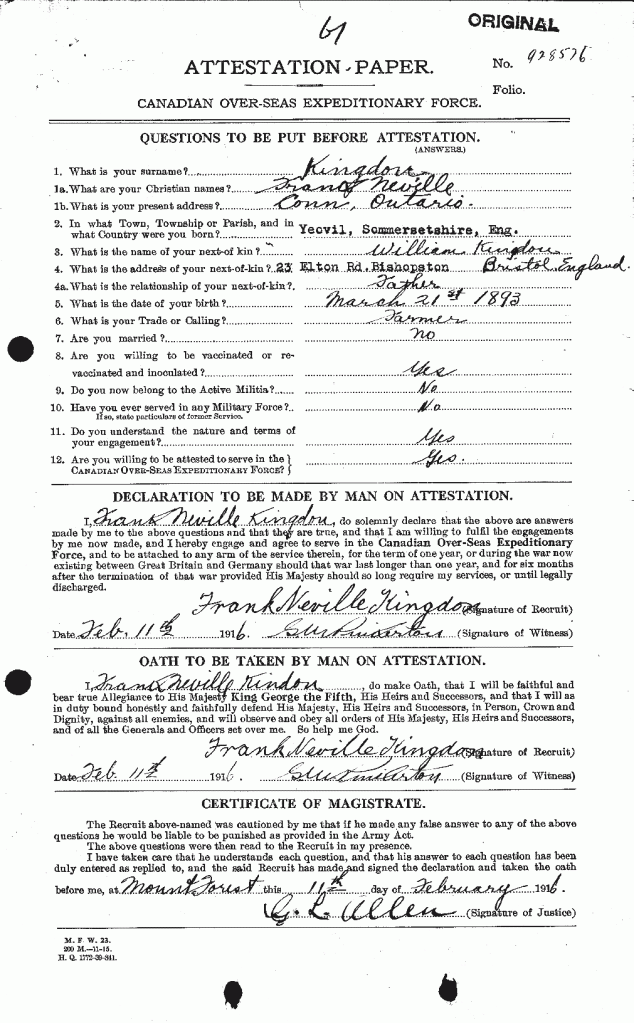 61
ORIGINAL
ATTESTATION PAPER.
No. 928576
Folio.
CANADIAN OVER-SEAS EXPEDITIONARY FORCE.
QUESTIONS TO BE PUT BEFORE ATTESTATION.
(ANSWERS.)
1. What is your surname? Kingdon
1a. What are your Christian names? Frank Neville
1b. What is your present address? Conn, Ontario.
2. In what Town, Township or Parish, and in
what Country were you born? Yeovil, Sommersetshire, Eng.
3. What is the name of your next-of kin? William Kingdon
4. What is the address of your next-of-kin? 23 Elton Rd. Bishopston Bristol, England.
4a. What is the relationship of your next-of-kin? Father
5. What is the date of your birth? March 21st 1893
6. What is your Trade or Calling? Farmer
7. Are you married? No
8. Are you willing to be vaccinated or re-
vaccinated and inoculated? Yes
9. Do you now belong to the Active Militia? No
10. Have you ever served in any Military Force? No
If so, state particulars of former Service.
11. Do you understand the nature and terms of
your engagement? Yes
12. Are you willing to be attested to serve in the
CANADIAN OVER-SEAS EXPEDITIONARY FORCE? Yes.
DECLARATION TO BE MADE BY MAN ON ATTESTATION.
I, Frank Neville Kingdon, do solemnly declare that the above are answers
made by me to the above questions and that they are true, and that I am willing to fulfil the engagements
by me now made, and I hereby engage and agree to serve in the Canadian Over-Seas Expeditionary
Force, and to be attached to any arm of the service therein, for the term of one year, or during the war now
existing between Great Britain and Germany should that war last longer than one year, and for six months
after the termination of that war provided His Majesty should so long require my services, or until legally
discharged.
Frank Neville Kingdon (Signature of Recruit)
Date Feb. 11th 1916. (Signature of Witness)
OATH TO BE TAKEN BY MAN ON ATTESTATION.
I, Frank Neville Kindon, do make Oath, that I will be faithful and
bear true Allegiance to His Majesty King George the Fifth, His Heirs and Successors, and that I will as
in duty bound honestly and faithfully defend His Majesty, His Heirs and Successors, in Person, Crown and
Dignity, against all enemies, and will observe and obey all orders of His Majesty, His Heirs and Successors,
and of all the Generals and Officers set over me. So help me God.
Frank Neville Kingdon (Signature of Recruit)
Date Feb. 11th 1916. (Signature of Witness)
CERTIFICATE OF MAGISTRATE.
The Recruit above-named was cautioned by me that if he made any false answer to any of the above
questions he would be liable to be punished as provided in the Army Act.
The above questions were then read to the Recruit in my presence.
I have taken care that he understands each question, and that his answer to each question has been
duly entered as replied to, and the said Recruit has made and signed the declaration and taken the oath
before me, at Mount Forest this 11th day of February 1916.
G. L. Allen (Signature of Justice)
M. F. W. 23.
200 M.—11-15.
H. Q. 1772-39-841.